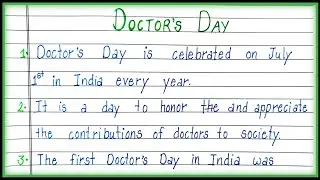 DOCTOR'S DAY
1. Doctor's Day is celebrated on July
1st in India every year.
2. It is a day to honor the and appreciate
the contributions of doctors to society.
3. The first Doctor's Day in India was